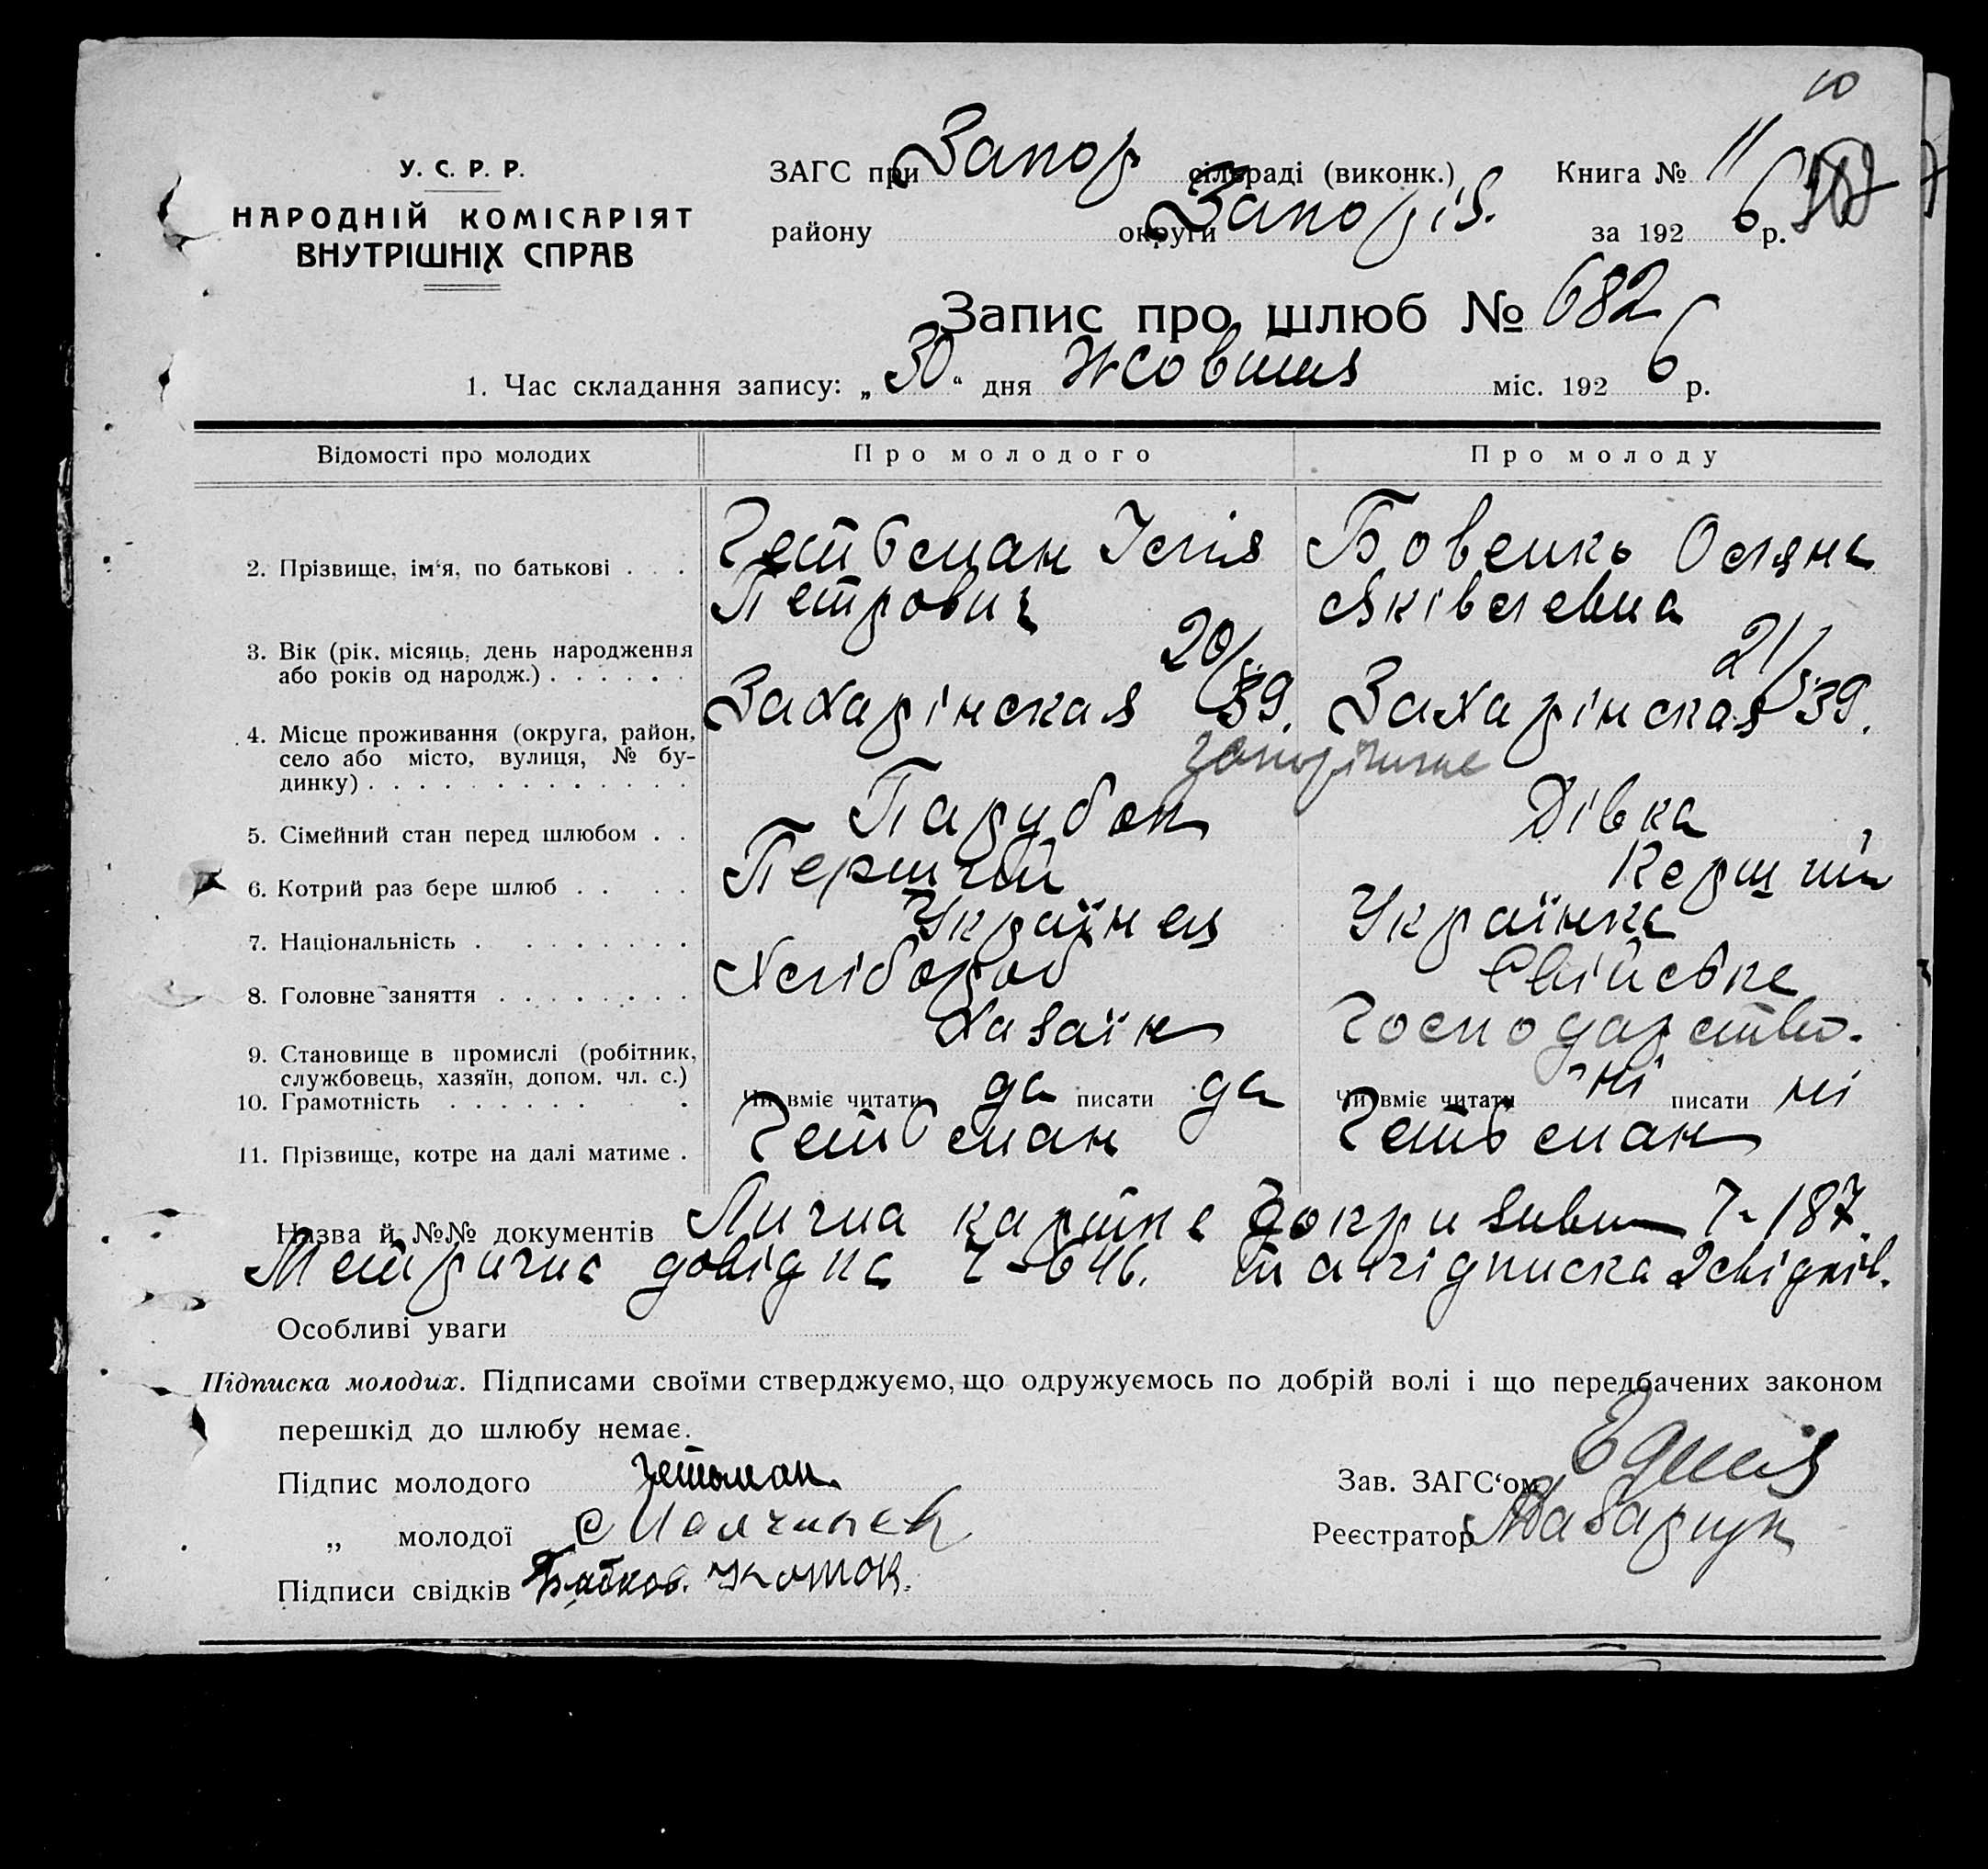 10
У. С. Р. Р.
НАРОДНІЙ КОМІСАРІЯТ
ВНУТРІШНІХ СПРАВ
ЗАГС при Запор сільраді (виконк.) Книга № 11
району округи Запоріз. за 192 6 р.
Запис про шлюб № 682
1. Час складання запису: „ 30 “ дня Жовтня міс. 192 6 р.
Відомості про молодих Про молодого Про молоду
2. Прізвище, ім‘я, по батькові . . . Гетьман Ілія Бовенко Оляна
Петрович Яківлевна
3. Вік (рік, місяць, день народження 20 21
або років од народж.) . . . . . .
4. Місце проживання (округа, район, Захарінская 39. Захарінская 39.
село або місто, вулиця, № бу-
динку) . . . . . . . . . . . . .
5. Сімейний стан перед шлюбом . . Парубок Дівка
6. Котрий раз бере шлюб . . . . Перший Перший
7. Національність . . . . . . . . Українец Українка
8. Головне заняття . . . . . . . . Хлібороб Свійське
9. Становище в промислі (робітник, Хазаїн Господарство.
службовець, хазяїн, допом. чл. с.)
10. Грамотність . . . . . . . Чи вміє читати да писати да Чи вміє читати ні писати ні
11. Прізвище, котре на далі матиме . Гетьман Гетьман
Назва й №№ документів Лична картка 187.
Метрична довідка 646. та підписка 2 свідків.
Особливі уваги
Підписка молодих. Підписами своїми стверджуємо, що одружуємось по добрій волі і що передбачених законом
перешкід до шлюбу немає.
Підпис молодого Гетьман.
Зав. ЗАГС‘ом
„ молодої
Реєстратор
Підписи свідків